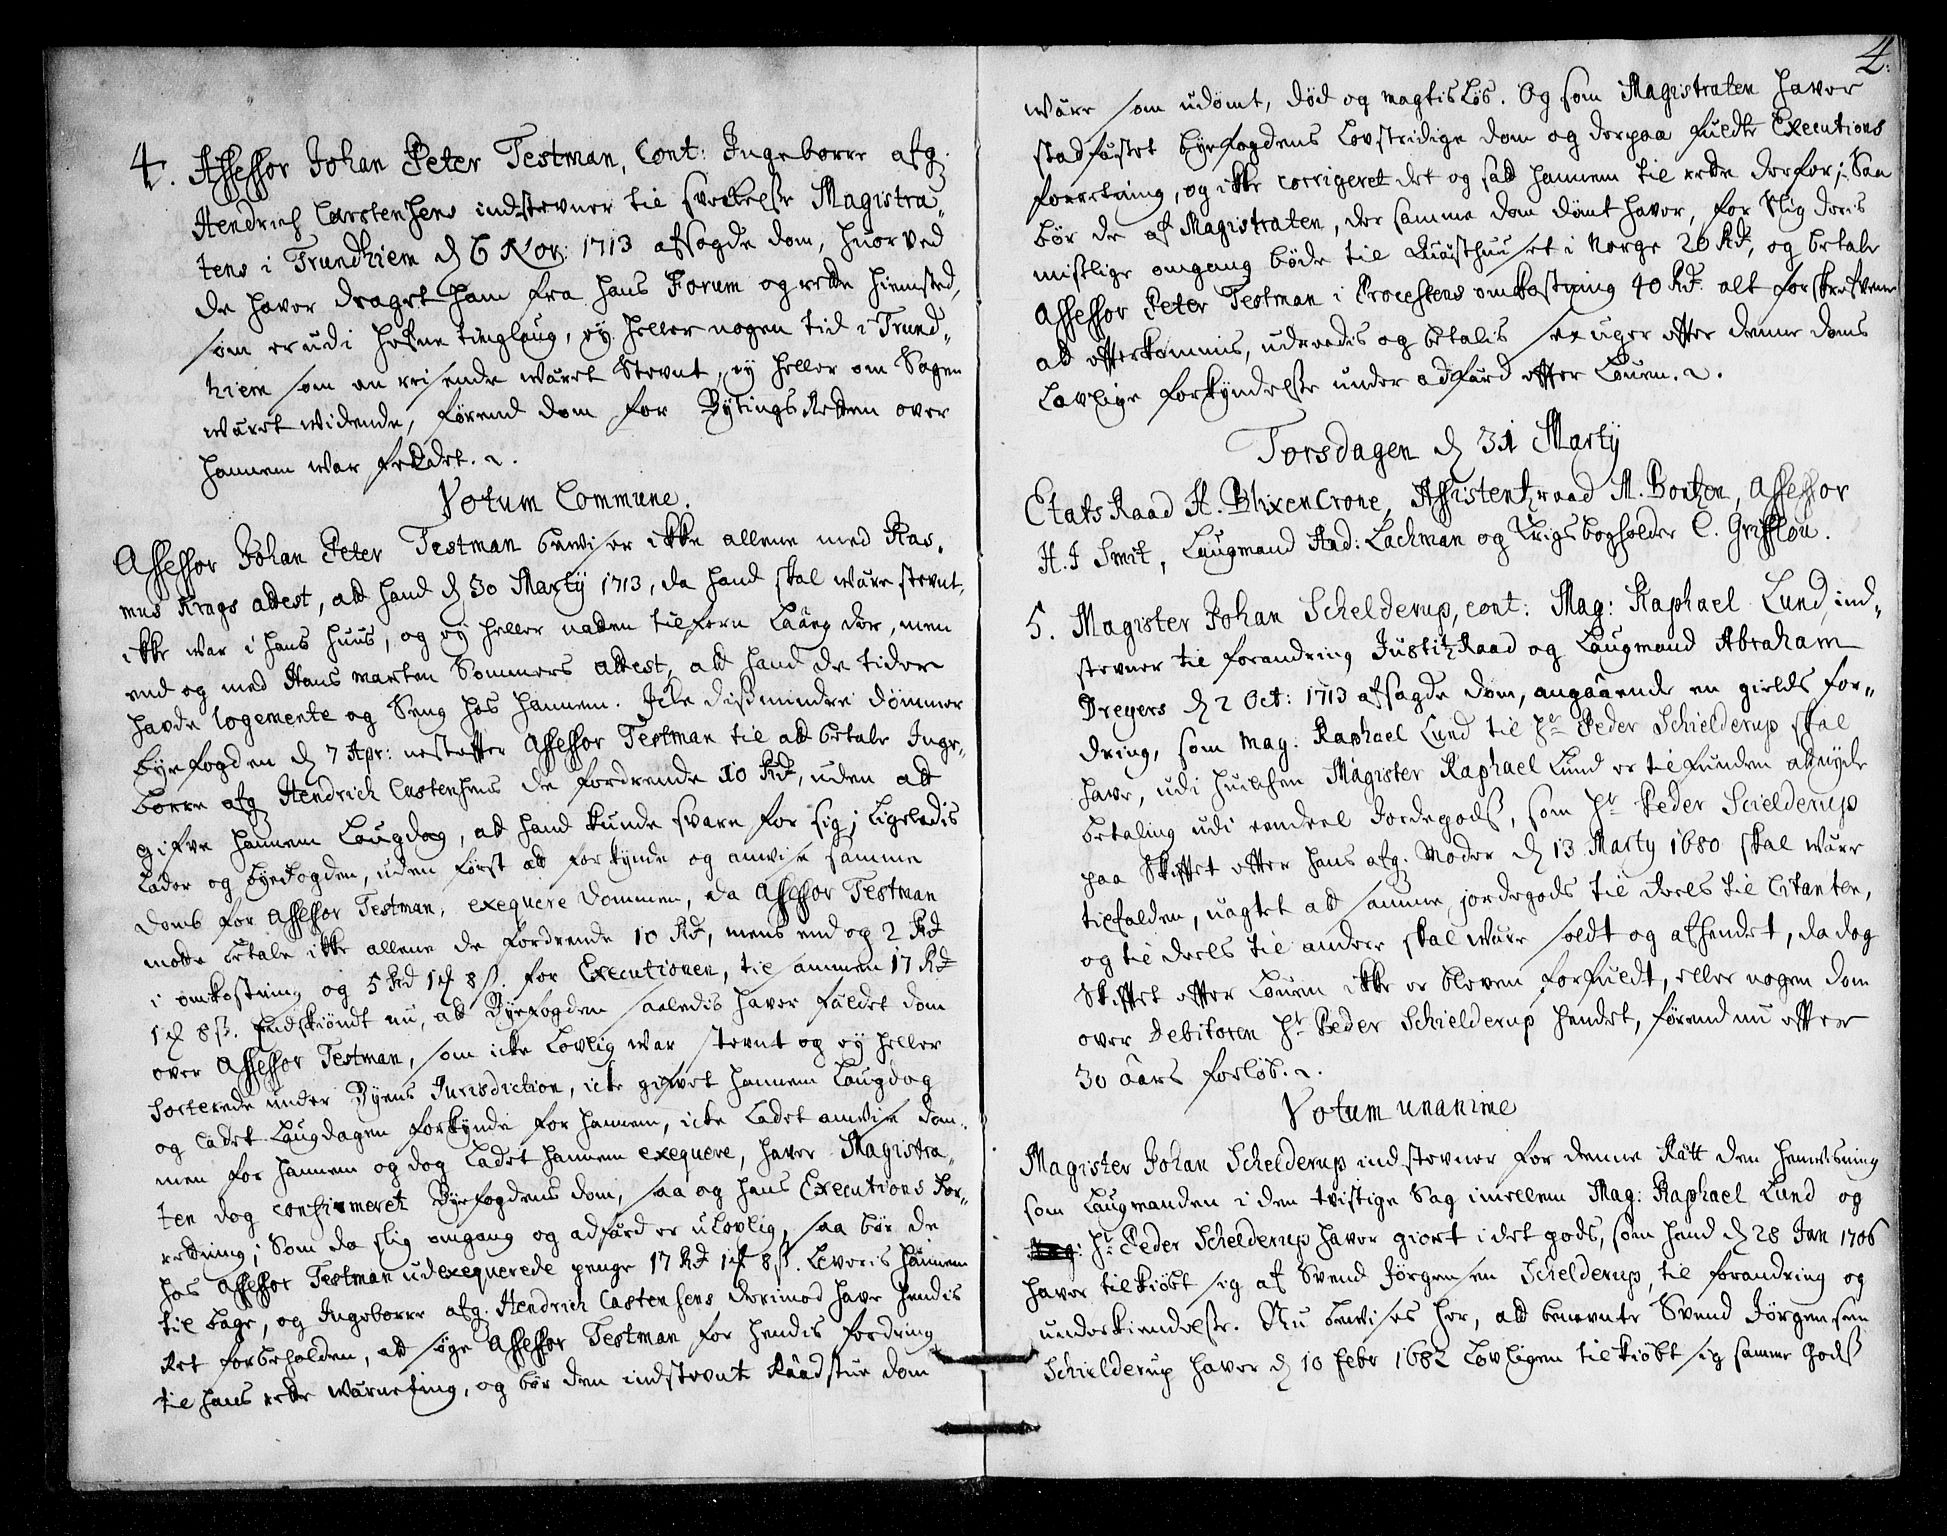 4. Assessor Johan Peter Testman, Cont: Ingeborre afg.
Hendrich Carstensens indstevner til svækkelse Magistra„
tens i Trundhiem d 6 Nov: 1713 afsagde dom, huorved
de haver draget ham fra hans Forum og rette hiemsted,
som er udi Hefne tinglaug, ey heller nogen tid i Trund„
hiem som en reisende været Stevnt, ey heller om Sagen
været widende, førend dom for Bytings Retten over
hannem war fældet.
Votum Commune.
Assessor Johan Peter Testman beviser ikke allene med Ras„
mus Krags attest, att hand d 30 Martij 1713, da hand skal være stevnt,
ikke war i hans huus, og ey heller natten tilforn laae der, men
end og med Hans Morten Sommers attest, att hand de tider
havde logemente og Seng hos hannem. Icke diss mindre dømmer
byefogden d 7 Apr: nestefter Assessor Testman til att betale Inge„
borre afg Hendrich Castensens de fordrende 10 Rd, uden att
gifve hannem Laugdag, att hand kunde svare for sig; Ligeledis
lader og byefogden, uden først att forkynde og anvise samme
doms for Assessor Testman, exequere dommen, da Assessor Testman
motte betale ikke allene de fordrende 10 Rd, mens end og 2 Rd
i omkostning og 5 Rd 1 ß 8 ß. for Executionen, tilsammen 17 Rd
1 ß 8 ß. Endskiøndt nu, att Byefogden saaledis haver fældet dom
over Assessor Testman, som icke Lovlig war stevnt og ey heller
sorterede under Byens Jurisdiction, icke gifvet hannem Laugdag
og ladet Laugdagen forkynde for hannem, icke ladet anvise dom„
men for hannem og dog ladet hannem exequere, haver Magistra„
ten dog confirmeret Byefogdens dom, saa og hans Executions for„
retning; Som da slig omgang og adfærd er ulovlig, saa bør de
hos Assessor Testman udexequerede penge 17 Rd 1 ß 8 ß. Leveris hannem
tilbage, og Ingeborre afg. Hendrich Castensens derimod have hendis
Ret forbeholden, att søge Assessor Testman for hendis fordring
til hans rette værneting, og bør den indstevnt Raadstue dom
4.
være som udømt, død og magtisløs. Og som Magistraten haver
stadfæstet byefogdens Lovstridige dom og derpaa fuldte Executions
forretning, og ikke corrigeret det og satt hannem til rette derfor; Saa
bør de af Magistraten, der samme dom dømt haver, for slig deris
mislige omgang bøde til Quæsthuuset i Norge 20 Rd, og betale
Assessor Peter Testman i Processens omkostning 40 Rd. alt forskrefvene
att efterkommis, udreedis og betalis sex uger efter denne doms
Lovlige forkyndelse under adfærd efter Louen.
Torsdagen d 31 Martij
Etats Raad H. Blixencrone, Assistentzraad M. Bortzen, Assessor
H. J Smit, Laugmand Aad: Lachman og Krigs bogholder C. Grifflou.
5. Magister Johan Schelderup, cont: Mag: Raphael Lund, ind„
stevner til forandring Justitz Raad og Laugmand Abraham
Dreyers d 2 Oct: 1713 afsagde dom, angaaende en gields for„
dring, som Mag. Raphael Lund til Hr Peder Schielderup skal
have, udi huilchen Magister Raphael Lund er tilfunden at nyde
betaling udi eendeel Jordegods, som Hr Peder Scielderup
paa Skiftet efter hans afg. Moder d 13 Marty 1680 skal være
tilfalden, uagtet att samme jordegods til deels til Citanten,
og til deels til andre skal være soldt og afhendet, da dog
Skiftet efter Louen ikke er bleven forfuldt, eller nogen dom
over Debitoren Hr Peder Schielderup hendet, førend nu efter
30 Aars forløb.
Votum unanime
Magister Johan Schelderup indstevner for denne Rätt den henvisning
som Laugmanden i den tvistige Sag imellem Mag: Raphael Lund og
Hr Peder Schelderup haver giort i det gods, som hand d 28 Jan 1706
haver tilkiøbt sig af Svend Jørgensen Schelderup, til forandring og
underkiendelse. Nu bevises her, att benevnte Svend Jørgensen
Schielderup haver d 10 Febr 1682 Lovligen tilkiøbt sig samme Gods